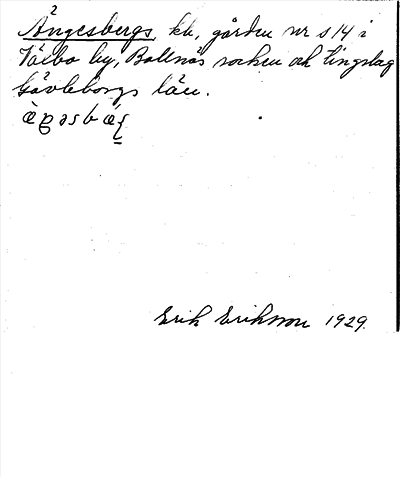 Ångesbergs, kb, gården nr s 14 i
Välbo by, Bollnäs socken och tingslag
Gävleborgs län.
Erik Eriksson 1929.